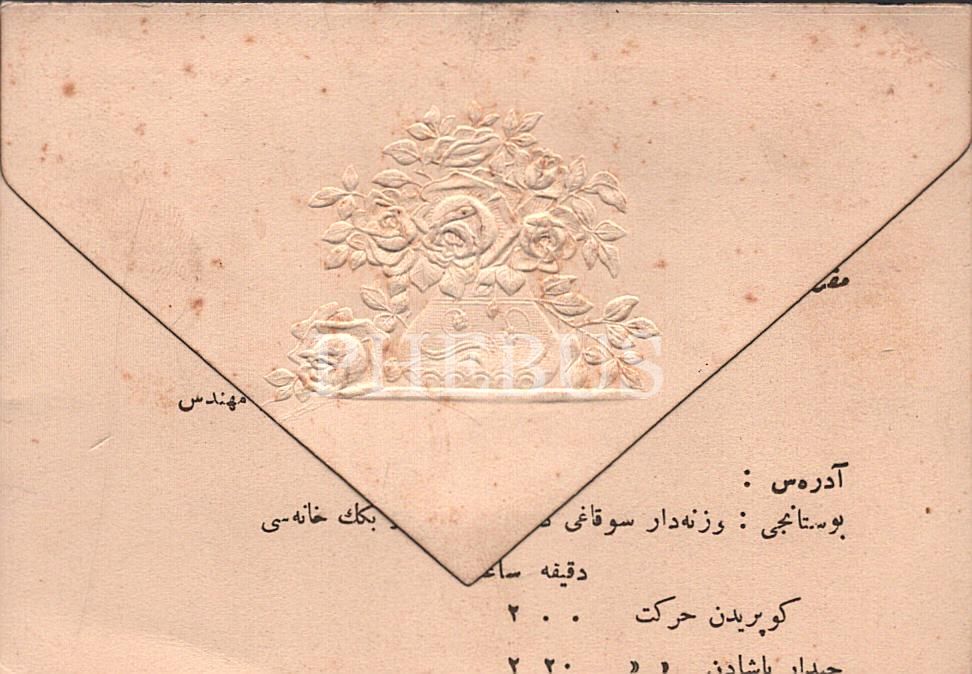 PHEBUS
مهندس
آدره‌س :
بوستانجی : وزنه‌دار سوقاغی بك خانه‌سی
دقیقه
كوپریدن حركت ۰ ۰ ۲
حیدار پاشادن » » ۲۰ ۲